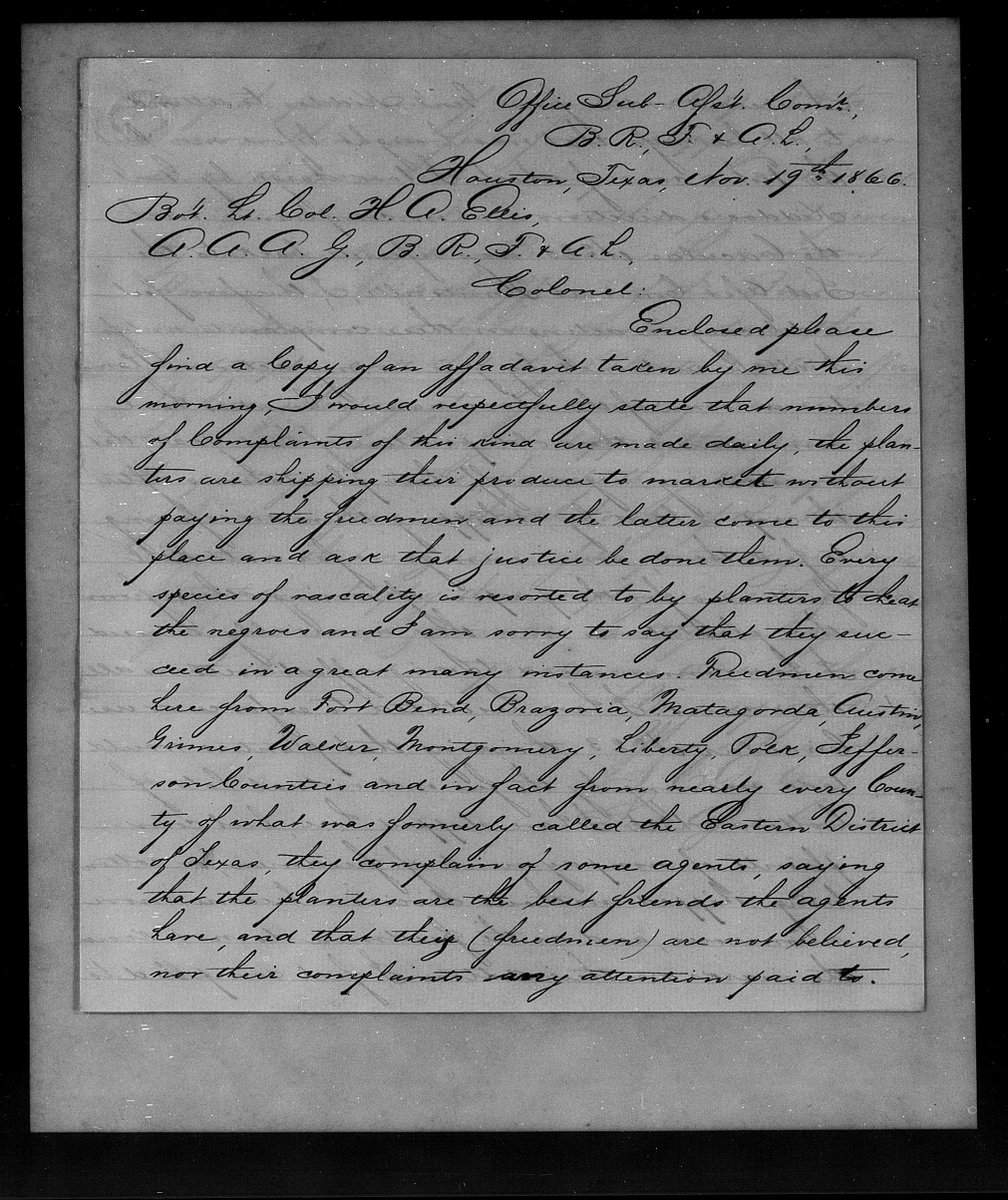 Office Sub-Asst. Comr.,
B. R., F. & A. L.,
Houston, Texas, Nov. 19th 1866.
Bvt. Lt. Col. H. A. Ellis,
A. A. A. G., B. R., F. & A. L,
Colonel:
Enclosed please
find a Copy of an affadavit taken by me this
morning, I would respectfully state that numbers
of Complaints of this kind are made daily, the plan-
ters are shipping their produce to market without
paying the freedmen, and the latter come to this
place and ask that justice be done them. Every
species of rascality is resorted to by planters to cheat
the negroes and I am sorry to say that they suc-
ceed in a great many instances. Freedmen come
here from Fort Bend, Brazoria, Matagorda, Austin,
Grimes, Walker, Montgomery, Liberty, Polk, Jeffer-
son Counties and in fact from nearly every Coun-
ty of what was formerly called the Eastern District
of Texas, they complain of some agents, saying
that the planters are the best friends the agents
have, and that they (freedmen) are not believed,
nor their complaints any attention paid to.